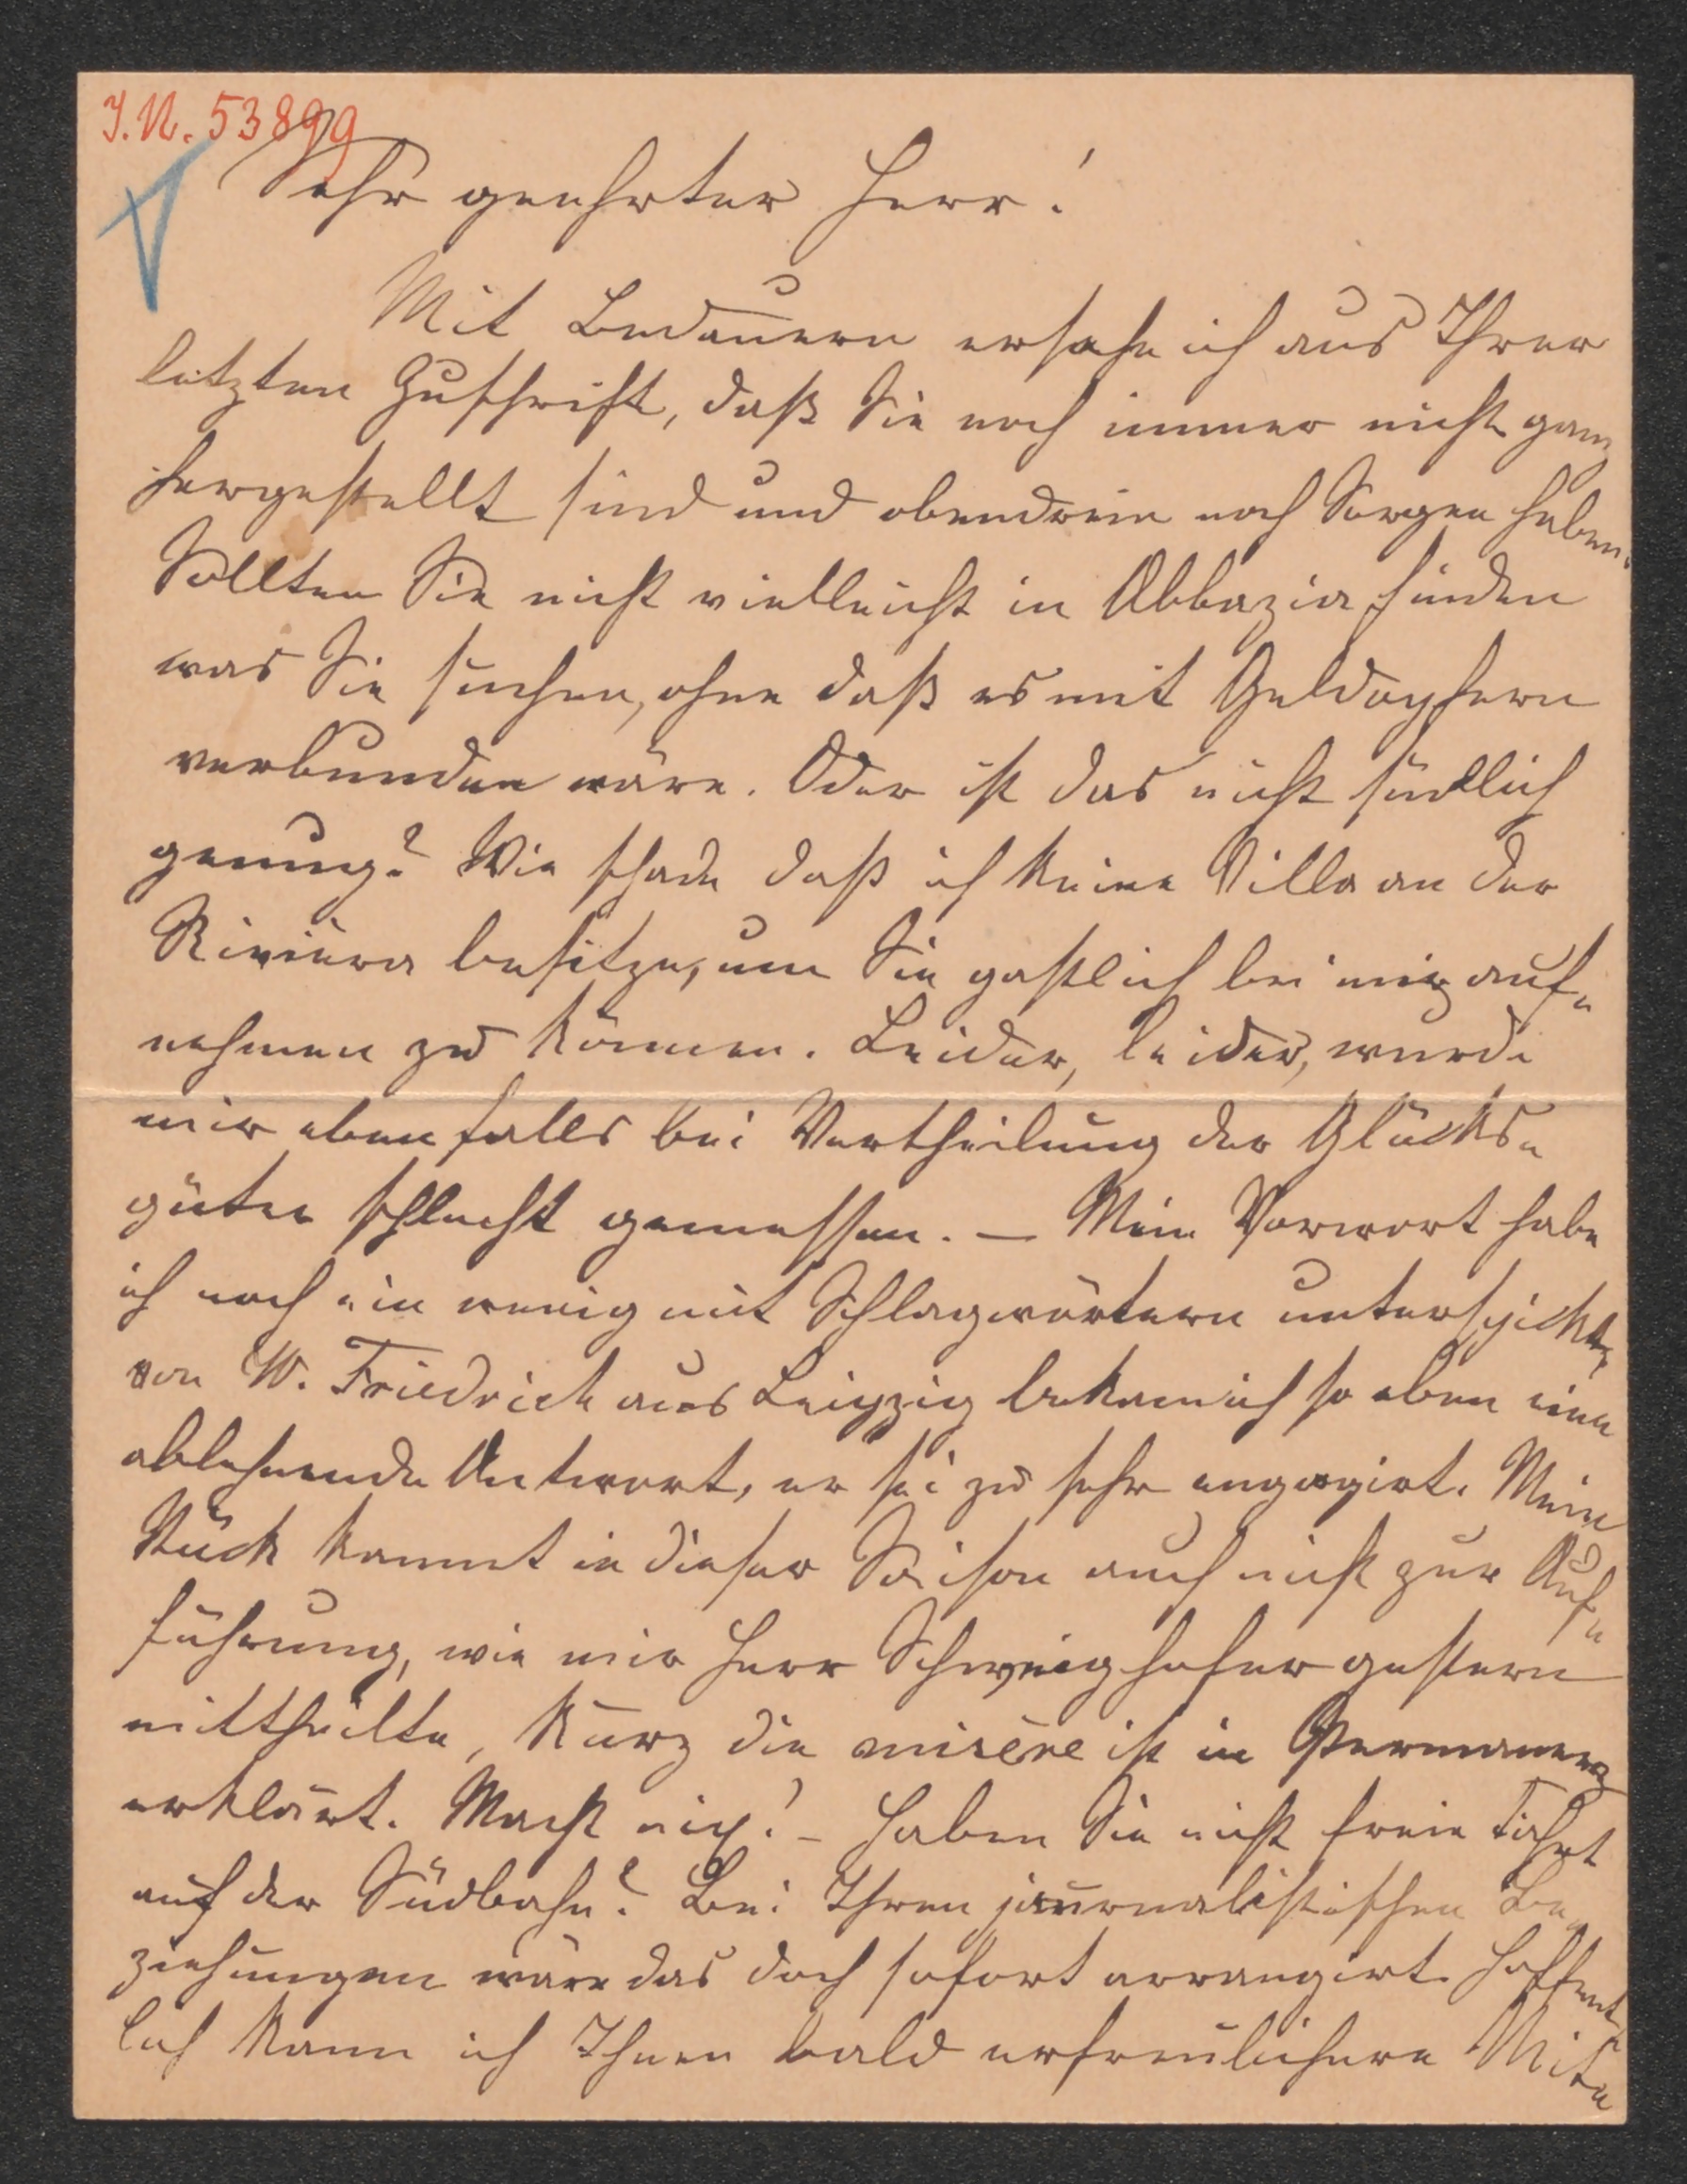 I.N. 53899
Sehr geehrter Herr!
Mit Bedauern ersehe ich aus Ihrer
letzten Zuschrift, daß Sie noch immer nicht ganz
hergestellt sind und obendrein noch Sorgen haben.
Sollten Sie nicht vielleicht in Abbazia finden
was Sie suchen, ohne daß es mit Geldopfern
verbunden wäre. Oder ist das nicht südlich
genug? Wie schade daß ich keine Villa an der
Riviera besitze, um Sie gastlich bei mir auf-
nehmen zu können. Leider, leider, wurde
mir ebenfalls bei Vertheilung der Glücks-
güter schlecht gemessen. — Mein Vorwort habe
ich noch ein wenig mit Schlagwörtern unterspickt,
von W. Friedrich aus Leipzig bekam ich so eben eine
ablehnende Antwort, er sei zu sehr engagirt. Mein
Stück kommt in dieser Saison auch nicht zur Auf-
führung, wie mir Herr Schweighofer gestern
mittheilte, kurz die misère ist in Permanenz
erklärt. Macht nix! – Haben Sie nicht freie Fahrt
auf der Südbahn? Bei Ihren journalistischen Be-
ziehungen wäre das doch sofort arrangirt. Hoffent-
lich kann ich Ihnen bald erfreulichere Mit-